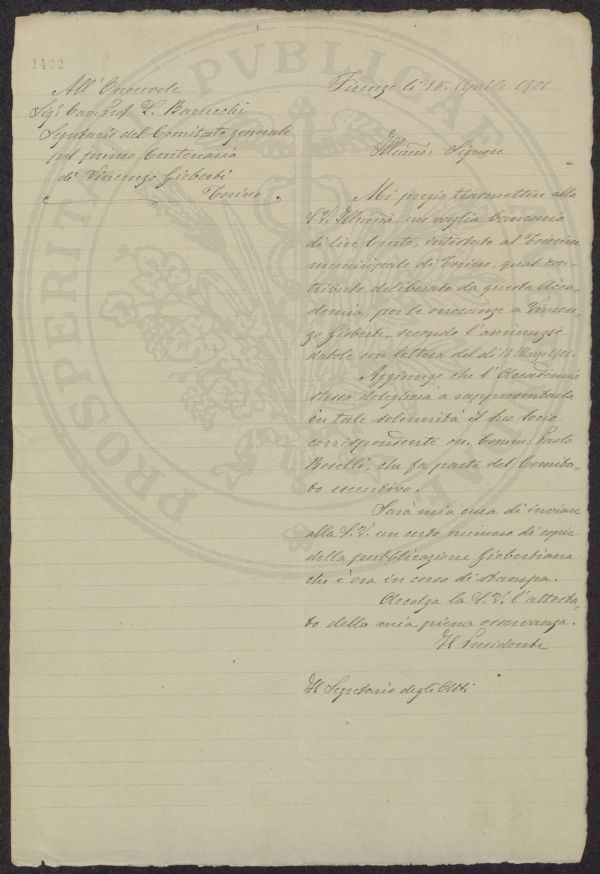 1432
All' Onorevole
Sigr Cav. Prof. L. Barrecchi
Segretario del Comitato generale
pel primo Centenario
di Vincenzo Gioberti
Torino
Firenze li 15. Aprile 1901
Illmo: Signore
Mi pregio trasmettere alla
S. V. Illma, un vaglia bancario
di lire Cento, intestato al Tesoriere
municipale di Torino, qual con-
tributo deliberato da questa Acca-
demia, per le onoranze a Vincen-
zo Gioberti, secondo l'annunzio
datole con lettera del dì Marzo
Aggiungo che l'Accademia
stessa delegherà a rappresentarla
in tale solennità il suo socio
corrispondente on. Comm. Paolo
Boselli, che fa parte del Comita-
to esecutivo.
Sarà mia cura di inviare
alla S. V. un certo numero di copie
della pubblicazione Giobertiana
che è ora in corso di stampa.
Accolga la S. V. l'attesta-
to della mia piena osservanza.
Il Presidente
Il Segretario degli Atti
PROSPERITATI PVBLICAE